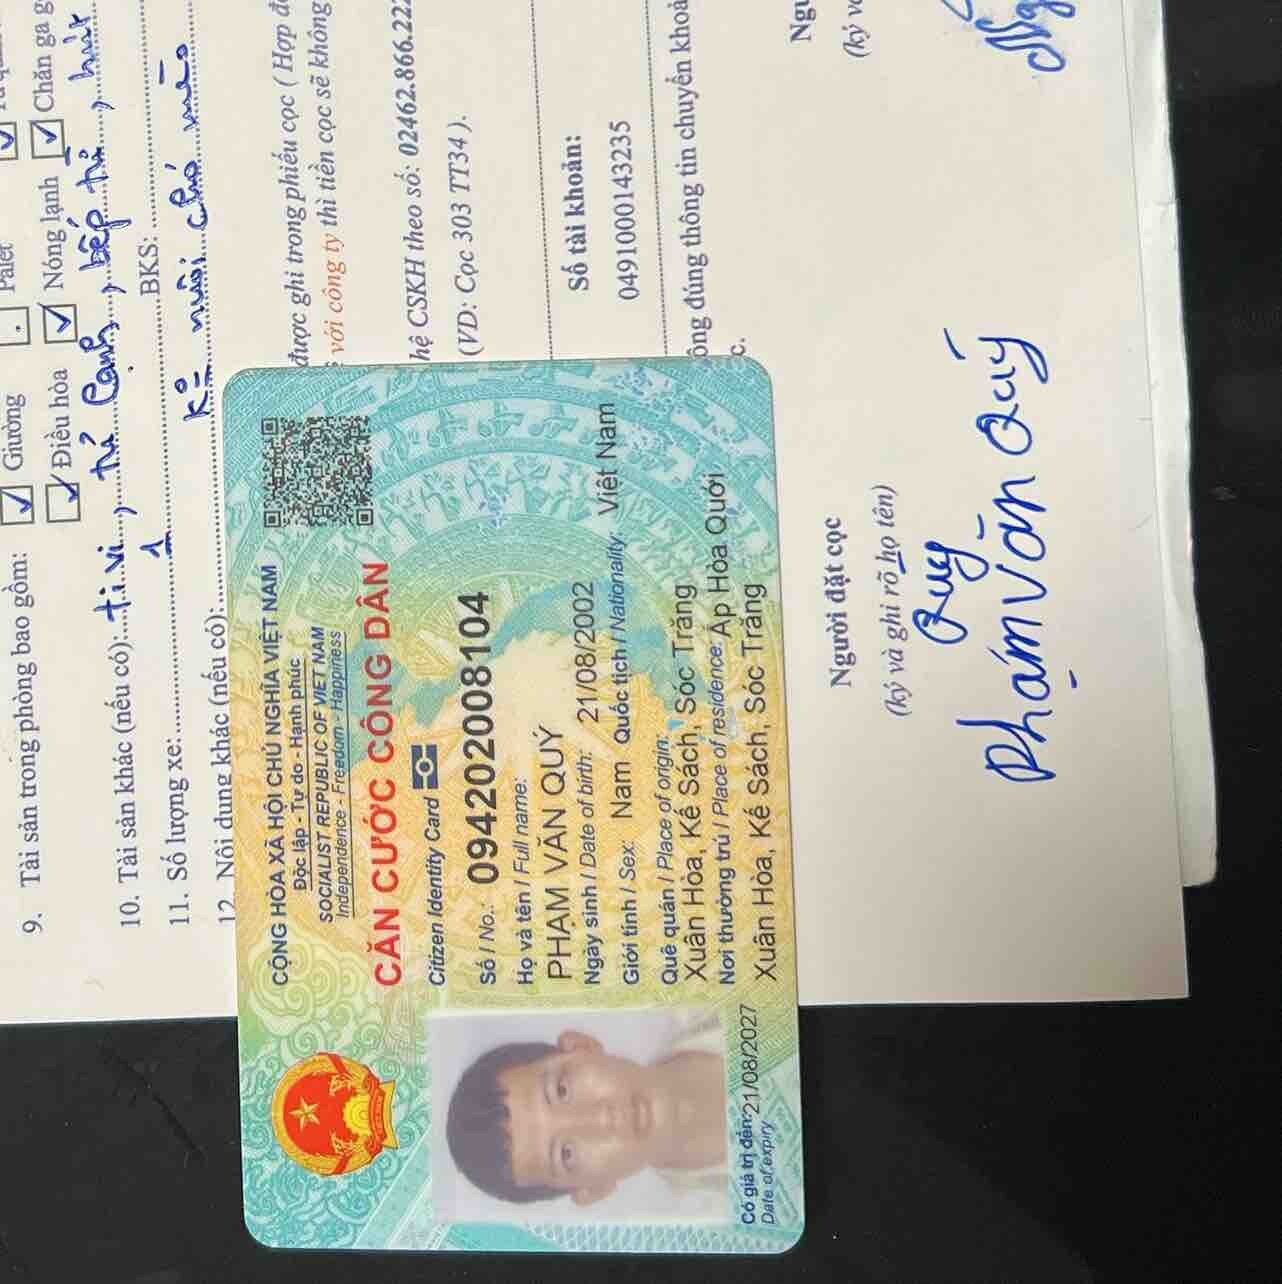 9. Tài sản trong phòng bao gồm: Giường Palet
Điều hòa Nóng lạnh Chăn ga
10. Tài sản khác (nếu có): ti vi, tủ lạnh, bếp từ, hút
11. Số lượng xe: 1 BKS:
12. Nội dung khác (nếu có): K° nuôi chó mèo
được ghi trong phiếu cọc ( Hợp
với công ty thì tiền cọc sẽ không
hệ CSKH theo số: 02462.866.222
(VD: Cọc 303 TT34 ).
Số tài khoản:
0491000143235
đúng thông tin chuyển khoản
CỘNG HÒA XÃ HỘI CHỦ NGHĨA VIỆT NAM
Độc lập - Tự do - Hạnh phúc
SOCIALIST REPUBLIC OF VIET NAM
Independence - Freedom - Happiness
CĂN CƯỚC CÔNG DÂN
Citizen Identity Card
Số / No.: 094202008104
Họ và tên / Full name:
PHẠM VĂN QUÝ
Ngày sinh / Date of birth: 21/08/2002
Giới tính / Sex: Nam Quốc tịch / Nationality: Việt Nam
Quê quán / Place of origin:
Xuân Hòa, Kế Sách, Sóc Trăng
Nơi thường trú / Place of residence: Ấp Hòa Quới
Xuân Hòa, Kế Sách, Sóc Trăng
Có giá trị đến: 21/08/2027
Date of expiry
Người đặt cọc
(ký và ghi rõ họ tên)
Quý
Phạm Văn Quý